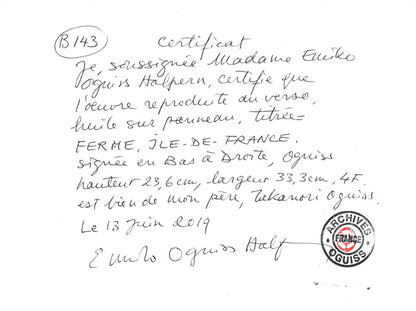 B143
Certificat
Je, soussignée Madame Emiko
Oguiss Halpern, certifie que
l'œuvre reproduite au verso,
huile sur panneau, titrée
FERME, ÎLE-DE-FRANCE.
signée en Bas à Droite, Oguiss
hauteur 23,6cm, largeur 33,3cm, 4F.
est bien de mon père, Takanori Oguiss.
Le 13 Juin 2019
Emiko Oguiss Half
ARCHIVES
FRANCE
OGUISS